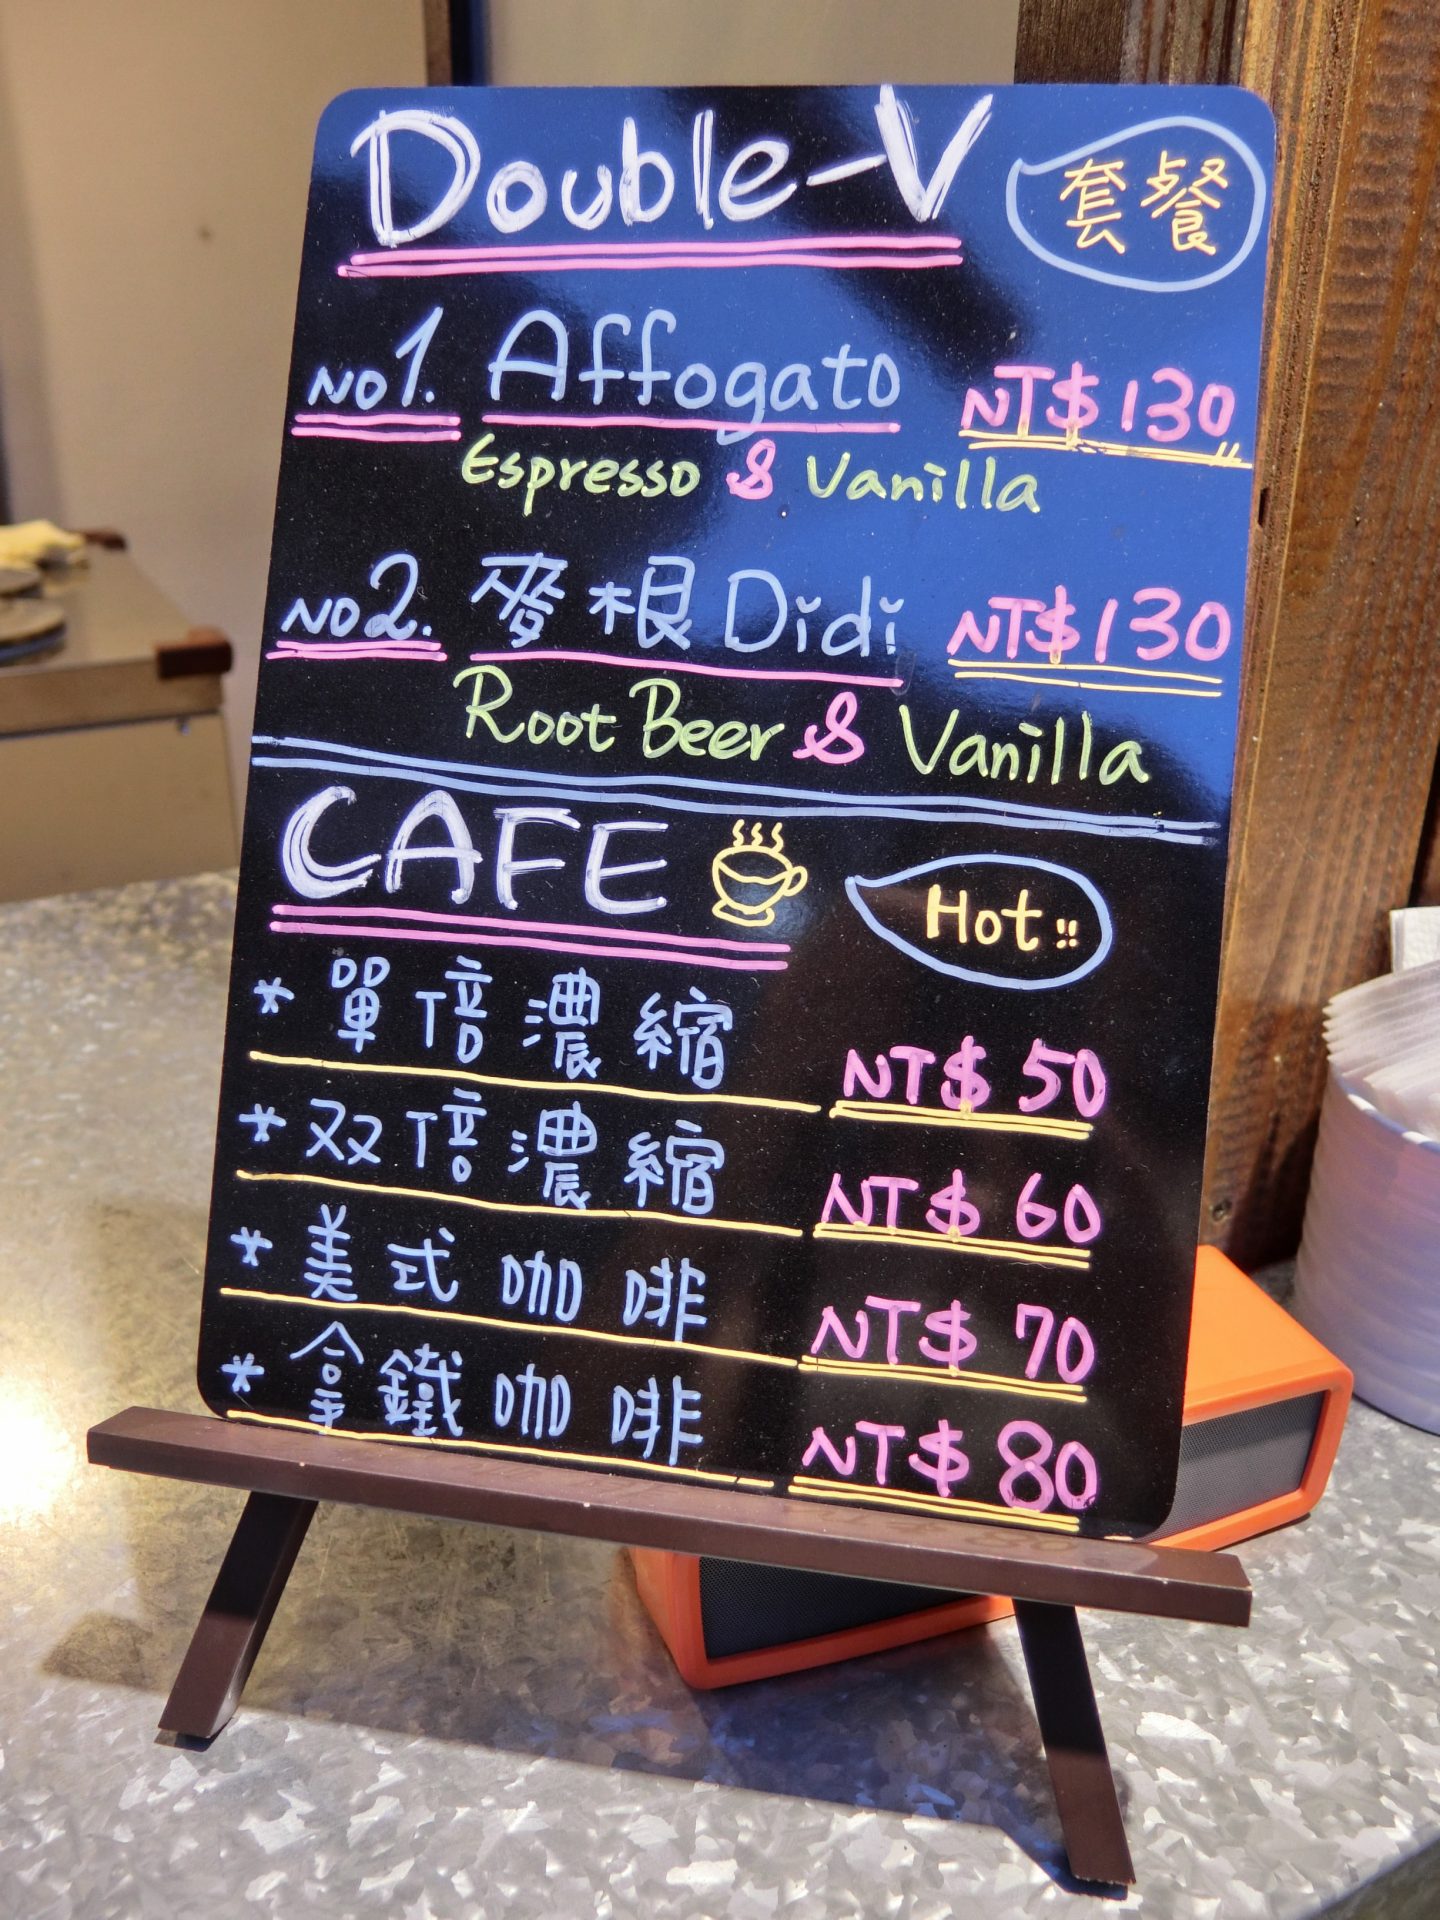 Double-V 套餐
NO1. Affogato NT$130
Espresso & Vanilla
NO2. 麥根Didi NT$130
Root Beer & Vanilla
CAFE Hot!!
* 單倍濃縮 NT$50
* 双倍濃縮 NT$60
* 美式咖啡 NT$70
* 拿鐵咖啡 NT$80